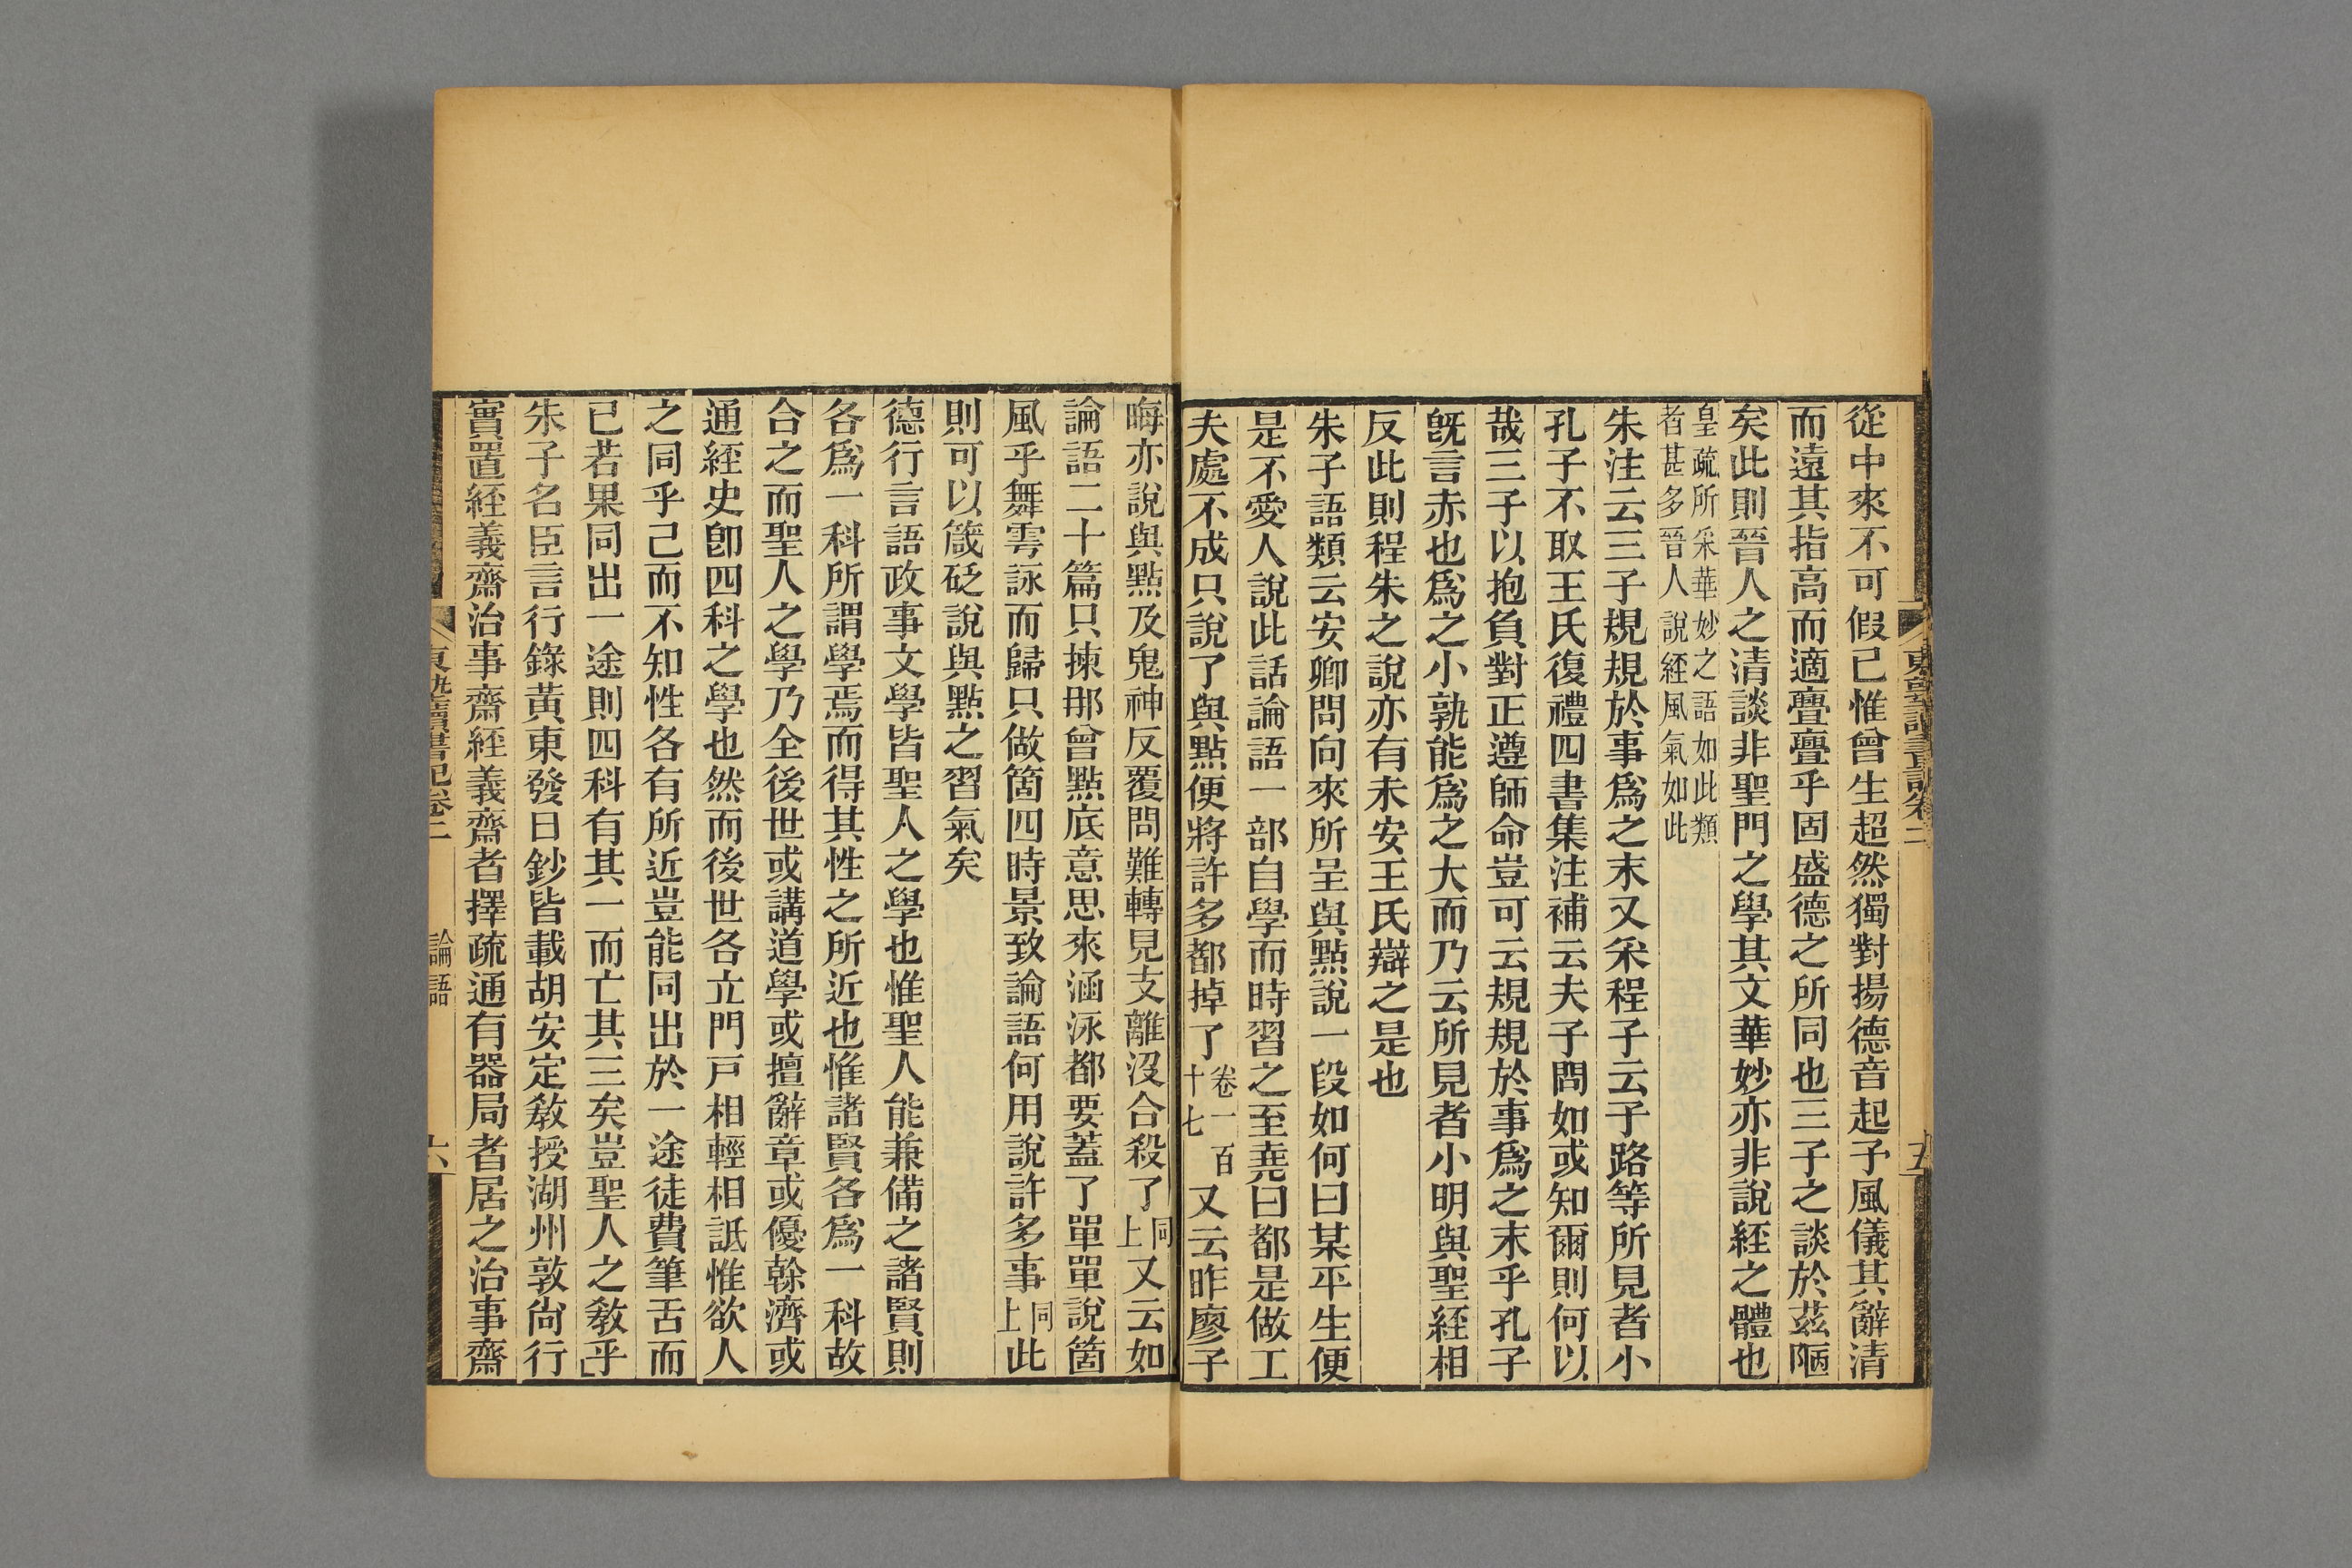 從中來不可假已惟曾生超然獨對揚德音起予風儀其辭清
而遠其指高而適亹亹乎固盛德之所同也三子之談於茲陋
矣此則晉人之清談非聖門之學其文華妙亦非說經之體也
皇疏所采華妙之語如此類
者甚多晉人說經風氣如此
朱注云三子規規於事爲之末又采程子云子路等所見者小
孔子不取王氏復禮四書集注補云夫子問如或知爾則何以
哉三子以抱負對正遵師命豈可云規規於事爲之末乎孔子
旣言赤也爲之小孰能爲之大而乃云所見者小明與聖經相
反此則程朱之說亦有未安王氏辯之是也
朱子語類云安卿問向來所呈與點說一段如何曰某平生便
是不愛人說此話論語一部自學而時習之至堯曰都是做工
夫處不成只說了與點便將許多都掉了卷一百十七又云昨廖子
晦亦說與點及鬼神反覆問難轉見支離沒合殺了同上又云如
論語二十篇只揀那曾點底意思來涵泳都要蓋了單單說箇
風乎舞雩詠而歸只做箇四時景致論語何用說許多事同上此
則可以箴砭說與點之習氣矣
德行言語政事文學皆聖人之學也惟聖人能兼備之諸賢則
各爲一科所謂學焉而得其性之所近也惟諸賢各爲一科故
合之而聖人之學乃全後世或講道學或擅辭章或優榦濟或
通經史卽四科之學也然而後世各立門戸相輕相詆惟欲人
之同乎己而不知性各有所近豈能同出於一途徒費筆舌而
已若果同出一途則四科有其一而亡其三矣豈聖人之敎乎
朱子名臣言行錄黃東發日鈔皆載胡安定敎授湖州敦尙行
實置經義齋治事齋經義齋者擇疏通有器局者居之治事齋
東塾讀書記卷二
論語
六
東塾讀書記卷二
五